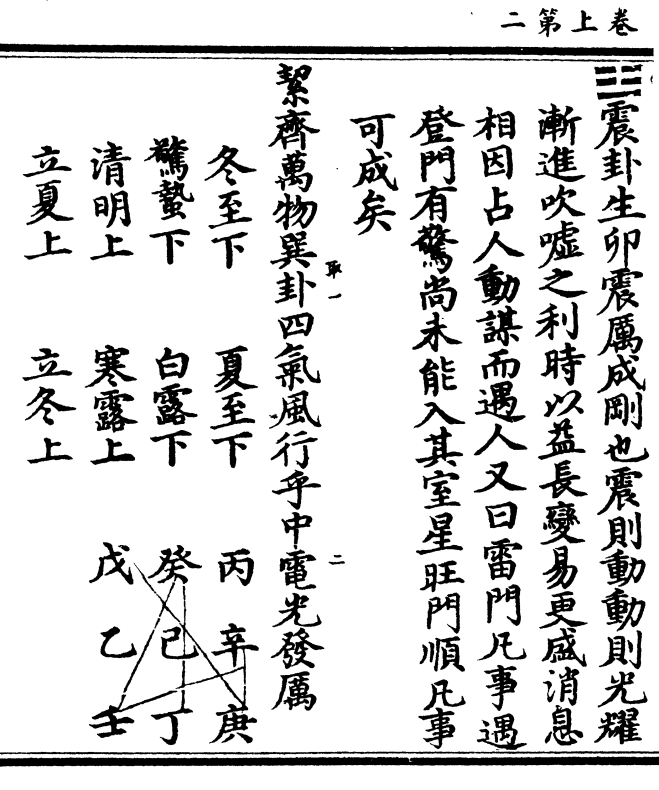 卷上第二
☳震卦生卯震厲成剛也震則動動則光耀
漸進吹噓之利時以益長變易更盛消息
相因占人動謀而遇人又曰雷門凡事遇
登門有驚尚未能入其室星旺門順凡事
可成矣
絜齊萬物巽卦四氣風行乎中電光發厲
取一
二
冬至下 夏至下 丙辛庚
驚蟄下 白露下 癸己丁
清明上 寒露上 戊乙壬
立夏上 立冬上